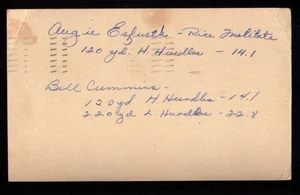 Augie Erfurth - Rice Institute
120 yd. H. Hurdles - 14.1
Bill Cummins -
120 yd H. Hurdles - 14.1
220 yd L. Hurdles - 22.8